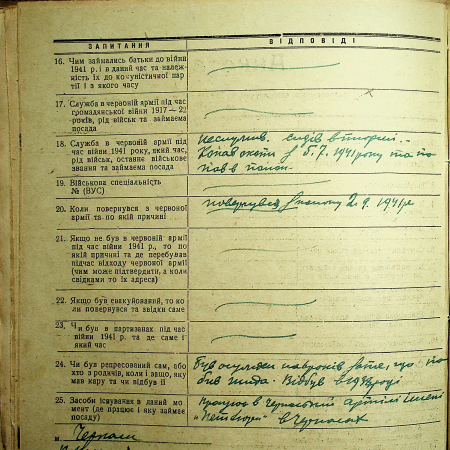 ЗАПИТАННЯ
ВІДПОВІДІ
16. Чим займались батьки до війни
1941 р. і в даний час та належ-
ність їх до комуністичної пар-
тії і в якого часу
17. Служба в червоній армії під час
громадянської війни 1917—22
років, рід військ та займаєма
посада
18. Служба в червоній армії під
час війни 1941 року, який час,
рід військ, останнє військове
звання та займаєма посада
Неслужив. сидів втюрмі..
Копав окопи 5.7. 1941 року та по
пав в
19. Військова спеціальність
№ (ВУС)
20. Коли повернувся з червоної
армії та по якій причині
повернувся 2. 9. 1941 р
21. Якщо не був в червоній армії
під час війни 1941 р., то по
якій причині та де перебував
підчас відходу червоної армії
(чим може підтвердити, а коли
свідками то їх адреса)
22. Якщо був евакуйований, то ко
ли повернувся та звідки саме
23. Чи був в партизанах під час
війни 1941 р. та де саме і
який час
24. Чи був репресований сам, або
хто з родичів, коли і защо, яку
мав кару та чи відбув її
Був на років зате, що по
бив жида. Відбув в році
25. Засоби існування в даний мо
мент (де працює і яку займає
посаду)
Працює в артілі імені
"Петлюри" в Черкасах
м. Черкаси